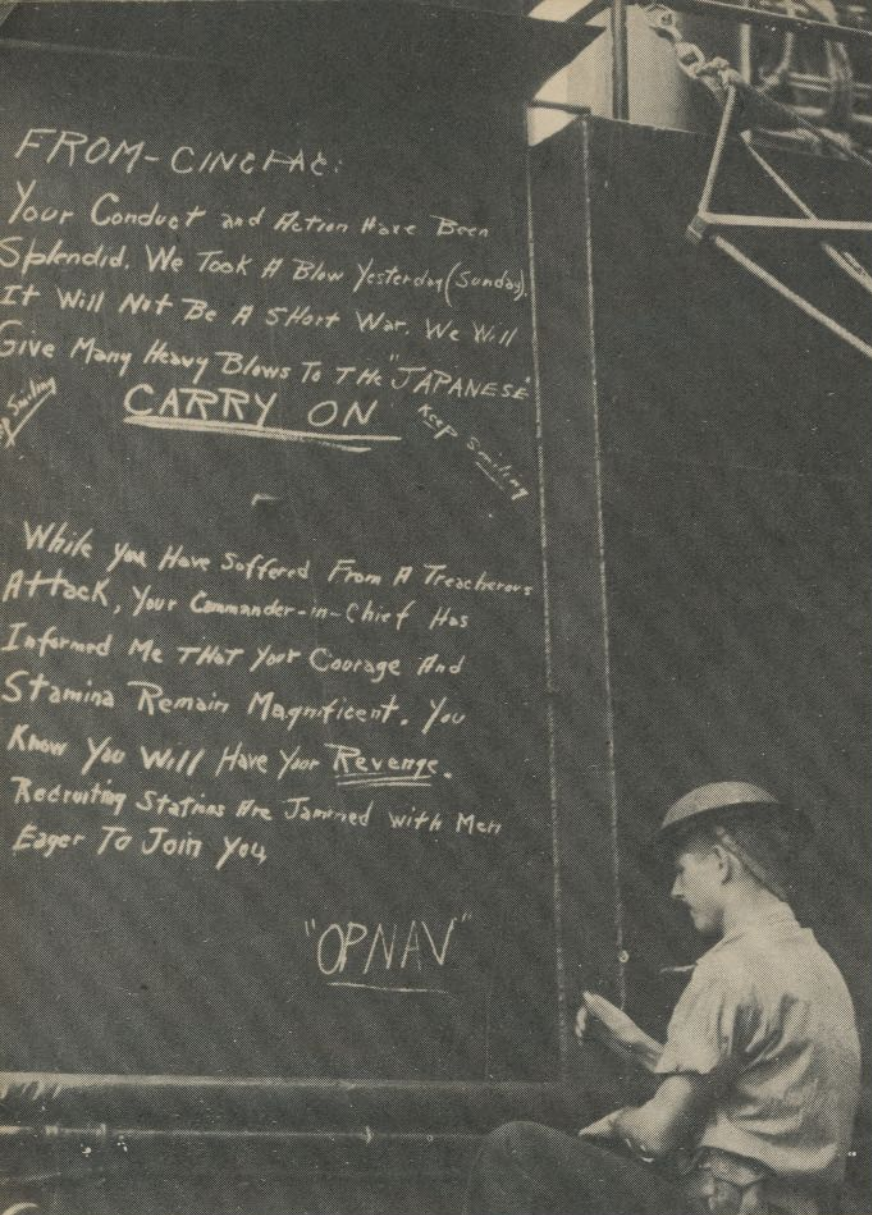 FROM-CINCPAC:
Your Conduct and Action Have Been
Splendid. We Took A Blow Yesterday (Sunday).
It Will Not Be A SHort War. We Will
Give Many Heavy Blows To THe "JAPANESE"
CARRY ON
Smiling
Keep Smiling
While you Have Suffered From A Treacherous
Attack, Your Commander-in-Chief Has
Informed Me THat Your Courage And
Stamina Remain Magnificent. You
Know You Will Have Your Revenge.
Recruiting Stations Are Jammed with Men
Eager To Join You,
"OPNAV"